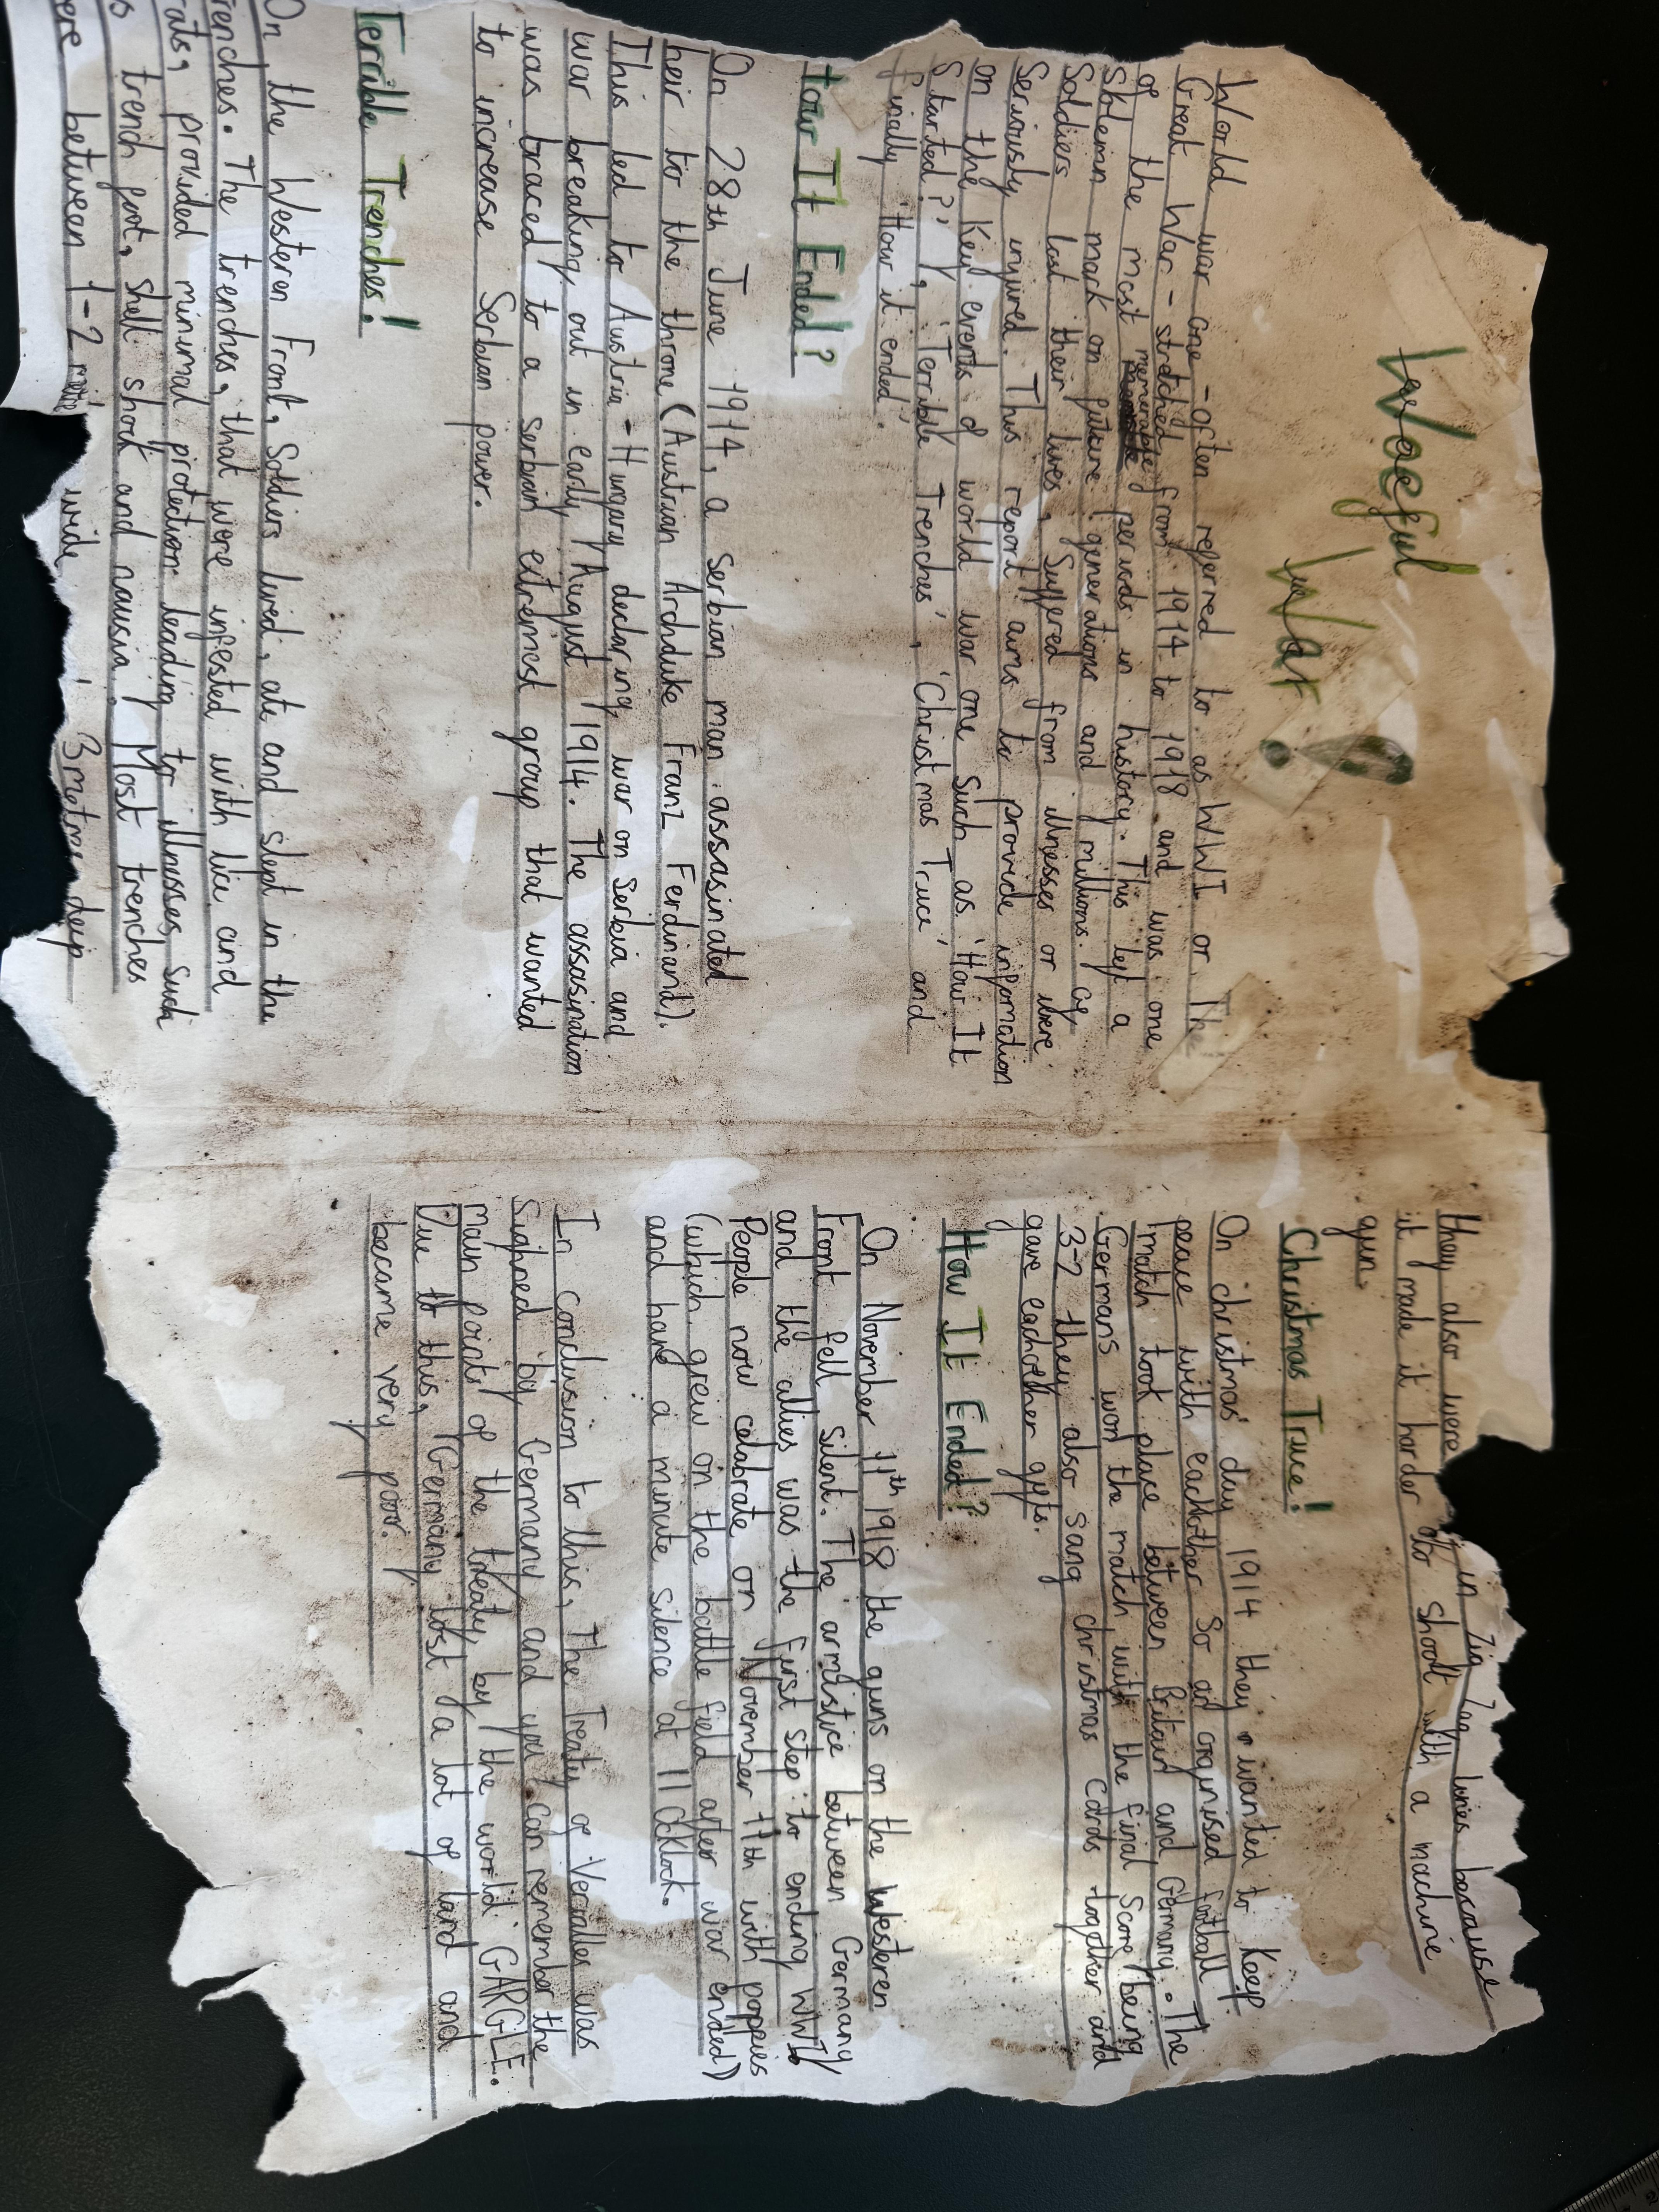 Woeful
War!
World war one - often referred to as WWI or The
Great War - stretched from 1914 to 1918 and was one
of the most memerable periods in history. This left a
Sklemin mark on future generations and millions. of
Soldiers lost their lives, Suffered from illnesses or were
Seriously injured. This report aims to provide infomation
on the Key events of world war one Such as 'How It
Started?', 'Terrible Trenches', 'Christmas Truce' and
finally 'How it ended'.
How It Ended?
On 28th June 1914, a Serbian man assasinated
heir to the throne (Austrian Archduke Franz Ferdinand).
This led to Austria - Hungary declaring war on Serbia and
war breaking out in early August 1914. The assasination
was traced to a serbian extremest group that wanted
to increase Serbian power.
Terrible Trenches!
On the Western Front, Soldiers lived, ate and slept in the
trenches. The trenches, that were infested with lice and
rats, provided minimal protection leading to illnesses such
as trench foot, Shell shock and nausia. Most trenches
were between 1-2 metre wide, 3 metres deep
they also were in Zig Zag lines because
it made it harder to shoot with a machine
gun.
Christmas Truce!
On christmas day 1914 they wanted to Keep
peace with eachother So an organised football
match took place between Britain and Germany. The
Germans won the match with the final Score being
3-2 they also sang christmas Cards together and
gave eachother gifts.
How It Ended?
On November 11th 1918 the guns on the Westeren
Front fell silent. The armistice between Germany
and the allies was the first step to ending WWI
People now celabrate on November 11th with poppies
(which grew on the battle field after war ended)
and have a minute silence at 11 O'clock.
In conclusion to this, The Treaty of Versailles was
Sighned by Germany and you can remember the
main points of the treaty by the world: GARGLE.
Due to this, Germany lost a lot of land and
became very poor.